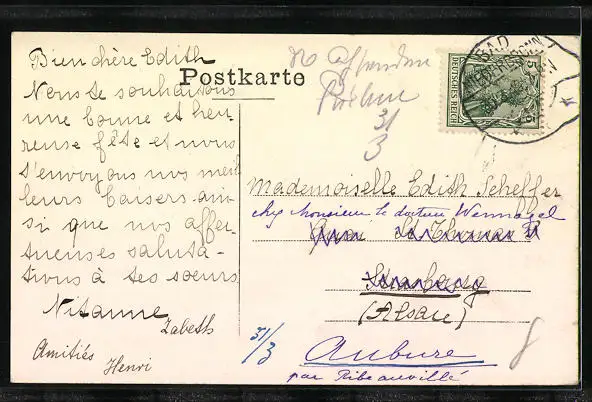 Bien chère Edith
Postkarte
Nous te souhaitons
une bonne et heu-
reuse fête et nous
t'envoyons nos meil
leurs baisers ain-
si que nos affec-
tueuses saluta-
tions à tes sœurs
Nitanne
Zabeth
Amitiés
Henri
31
3
DEUTSCHES REICH
BAD
NIEDERBRONN
Mademoiselle Edith Scheffer
chez Monsieur le docteur Wennagel
St Thomas
Strasbourg
(Alsace)
31/3
Aubure
par Ribeauvillé